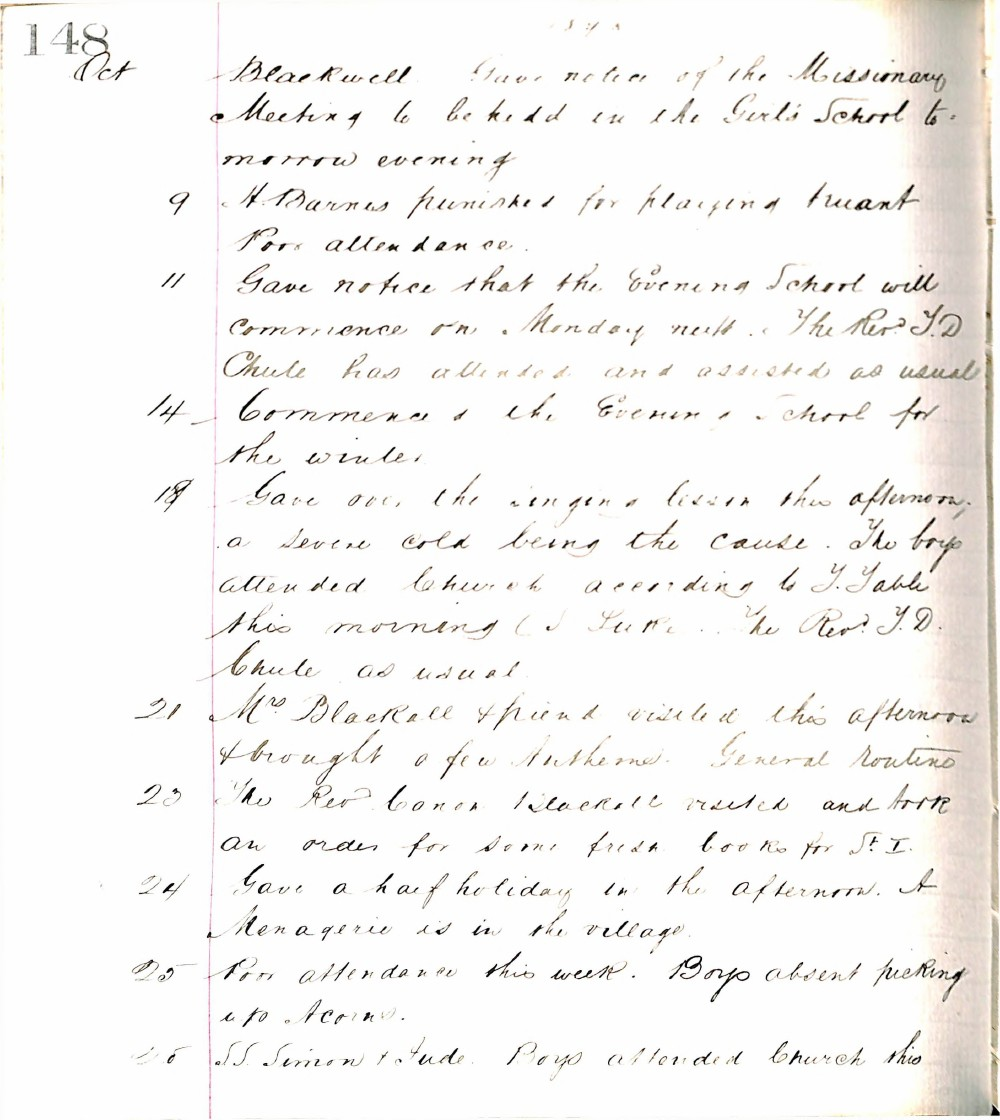 148
Oct Blackwell. Gave notice of the Missionary
Meeting to be held in the Girl's School to-
morrow evening
9 H. Barnes punished for playing truant
Poor attendance.
11 Gave notice that the Evening School will
commence on Monday next. The Revd T.D
Chute has attended and assisted as usual
14 Commenced the Evening School for
the winter
18 Gave over the singing lesson this afternoon,
a severe cold being the cause. The boys
attended Church according to T. Table
this morning (S Luke. The Revd T.D.
Chute as usual
21 Mrs Blackall & friend visited this afternoon
& brought a few Anthems. General routine
23 The Revd Canon Blackall visited and took
an order for some fresh books for St. I.
24 Gave a half holiday in the afternoon. A
Menagerie is in the village.
25 Poor attendance this week. Boys absent picking
up Acorns.
SS. Simon & Jude. Boys attended Church this